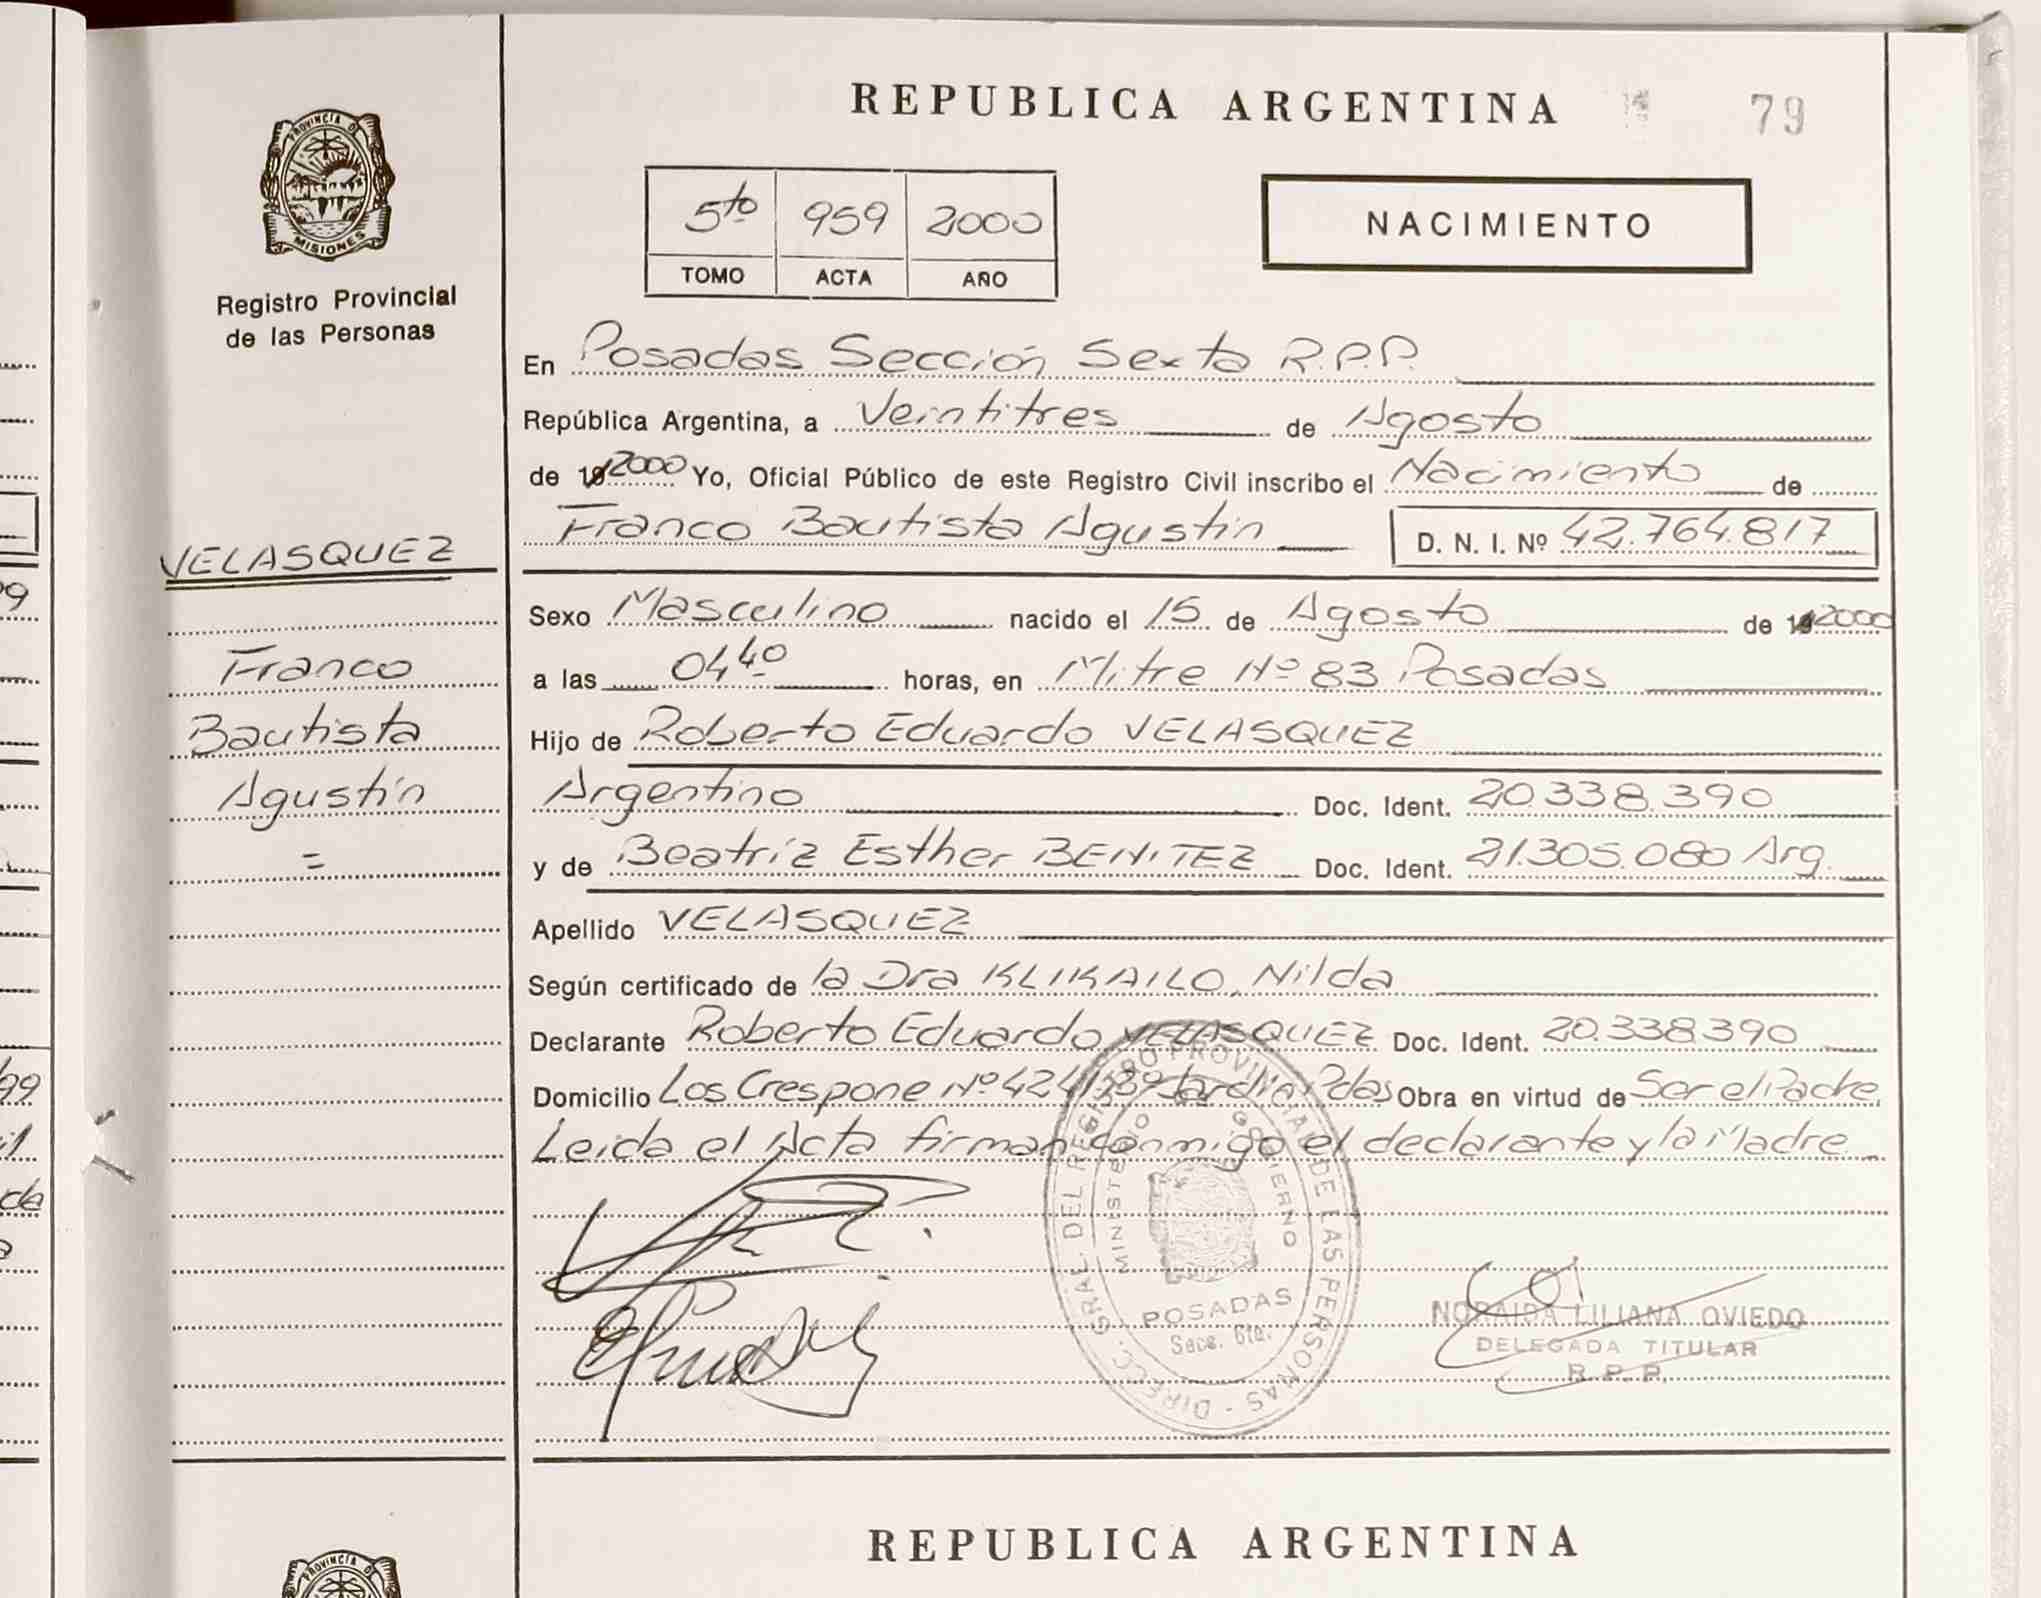 REPUBLICA ARGENTINA
79
PROVINCIA DE
MISIONES
Registro Provincial
de las Personas
5to 959 2000
TOMO ACTA AÑO
NACIMIENTO
En Posadas Sección Sexta R.P.P.
República Argentina, a Veintitres de Agosto
de 2000 Yo, Oficial Público de este Registro Civil inscribo el Nacimiento de
Franco Bautista Agustín D. N. I. Nº 42.764.817
VELASQUEZ
Franco
Bautista
Agustín
=
Sexo Masculino nacido el 15 de Agosto de 2000
a las 04 40 horas, en Mitre Nº 83 Posadas
Hijo de Roberto Eduardo VELASQUEZ
Argentino Doc. Ident. 20.338.390
y de Beatríz Esther BENITEZ Doc. Ident. 21.305.080 Arg.
Apellido VELASQUEZ
Según certificado de la Dra KLIKAILO, Nilda
Declarante Roberto Eduardo VELASQUEZ Doc. Ident. 20.338.390
Domicilio Los Crespone Nº Pdas Obra en virtud de Ser el Padre
Leida el Acta firman conmigo el declarante y la Madre
DIRECC. GRAL. DEL REGISTRO PROVINCIAL DE LAS PERSONAS
MINISTERIO GOBIERNO
POSADAS
Secc. 6ta.
NORAIDA LILIANA OVIEDO
DELEGADA TITULAR
R. P. P.
REPUBLICA ARGENTINA
PROVINCIA